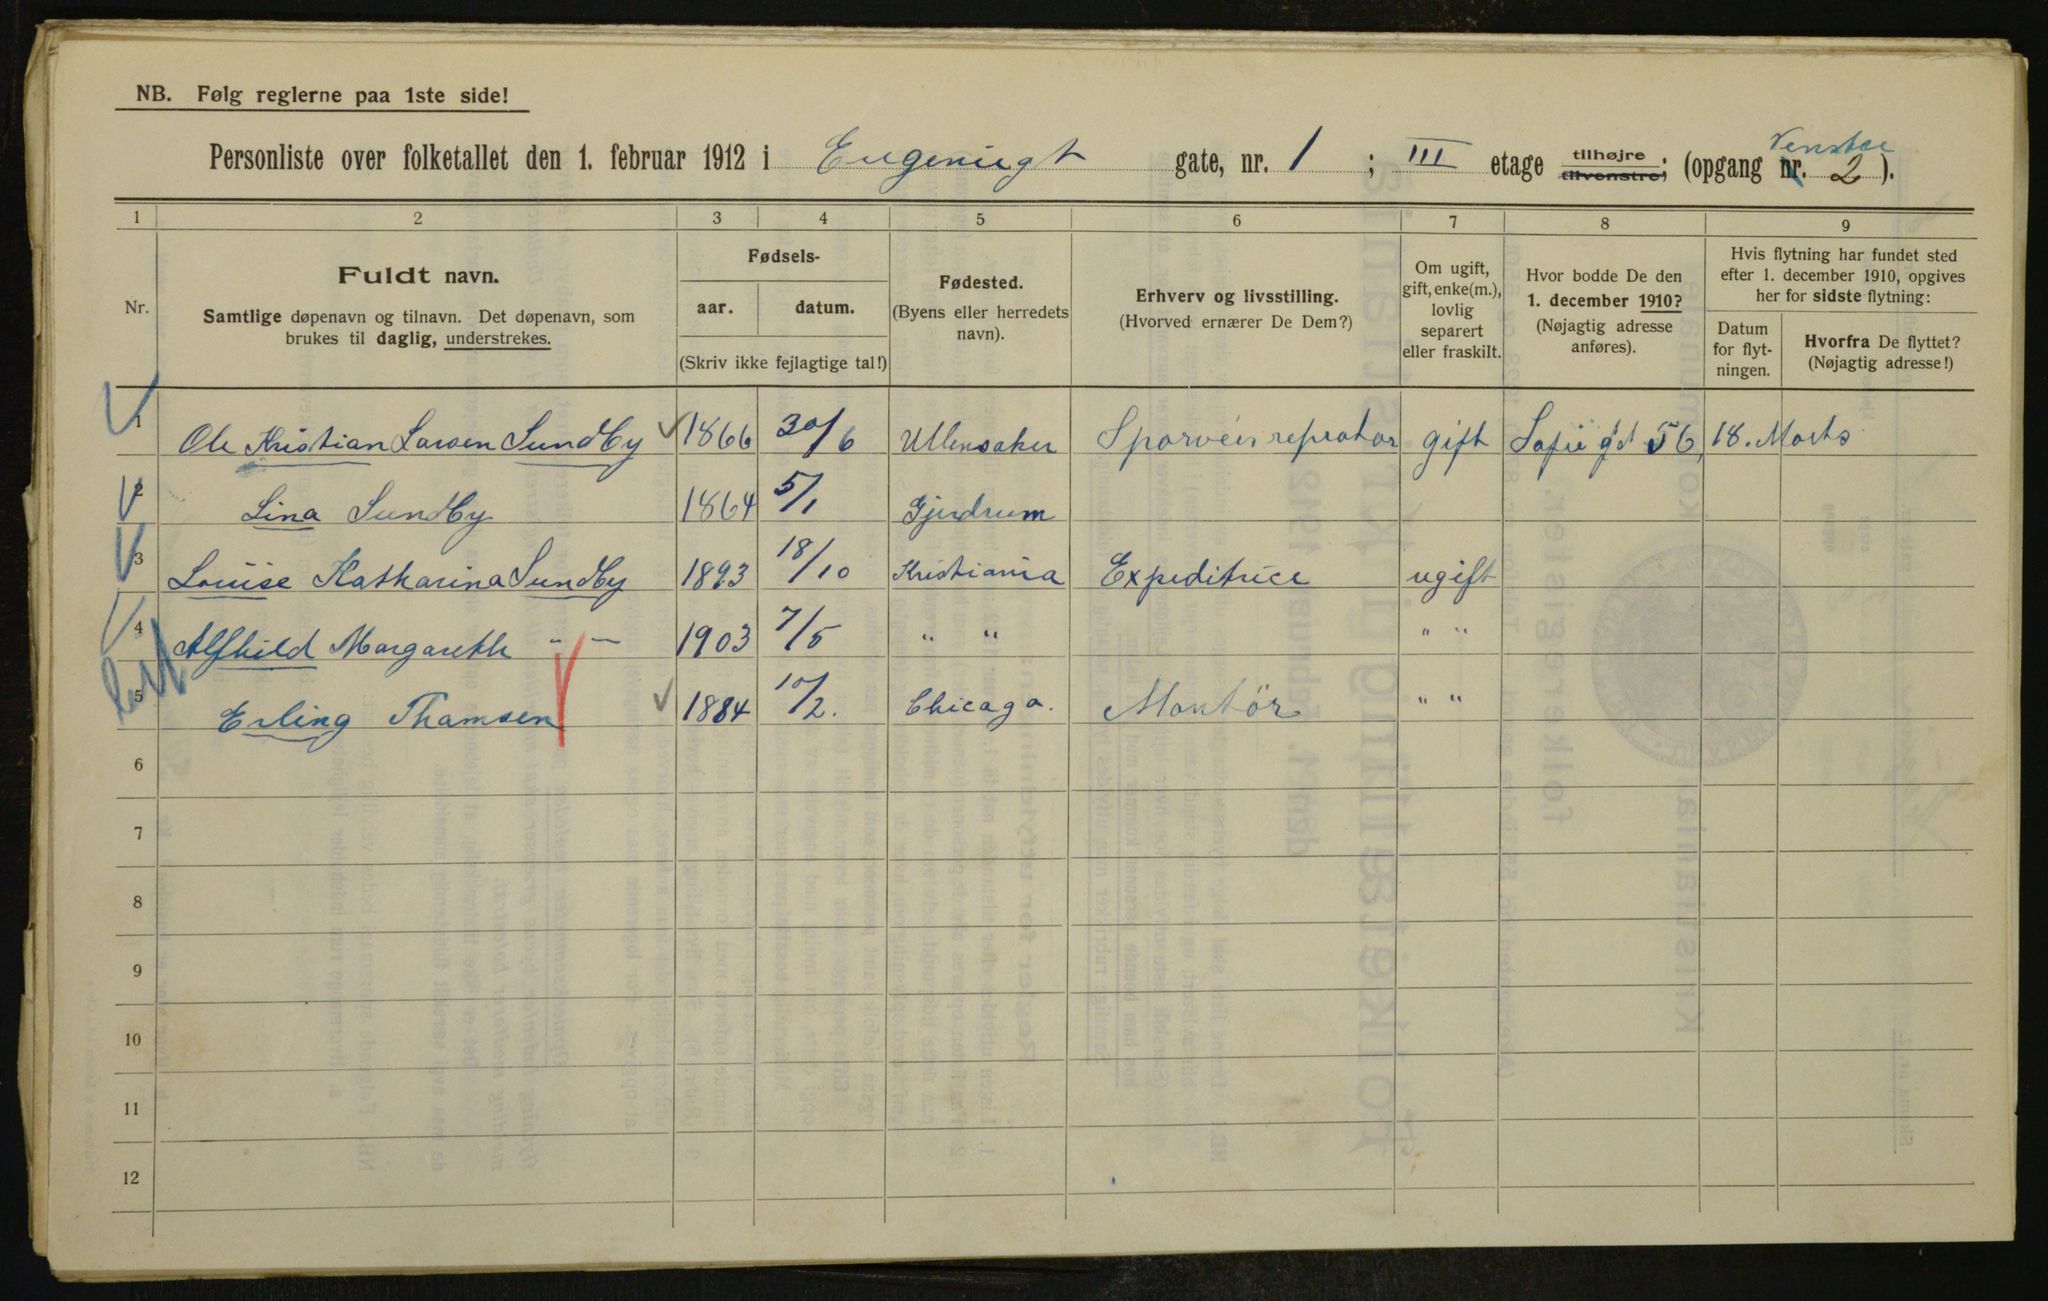 NB. Følg reglerne paa 1ste side!
Personliste over folketallet den 1. februar 1912 i Eugeniegt gate, nr. 1 ; III etage tilhøjre, tilvenstre, (opgang nr. 2 ). Venstre
1 2 3 4 5 6 7 8 9
Nr.
Fuldt navn.
Samtlige døpenavn og tilnavn. Det døpenavn, som
brukes til daglig, understrekes.
Fødsels-
aar. datum.
(Skriv ikke fejlagtige tal!)
Fødested.
(Byens eller herredets
navn).
Erhverv og livsstilling.
(Hvorved ernærer De Dem?)
Om ugift,
gift, enke(m.),
lovlig
separert
eller fraskilt.
Hvor bodde De den
1. december 1910?
(Nøjagtig adresse
anføres).
Hvis flytning har fundet sted
efter 1. december 1910, opgives
her for sidste flytning:
Datum
for flyt-
ningen.
Hvorfra De flyttet?
(Nøjagtig adresse!)
1 Ole Kristian Larsen Sundby 1866 30/6 Ullensaker Sporveis repratør gift Sofie gd 56, 18. Marts
2 Lina Sundby 1864 5/1 Gjerdrum
3 Louise Katharina Sundby 1893 18/10 Kristiania Expeditrice ugift
4 Alfhild Margareth " — 1903 7/5 " " " "
5 Erling Thamsen 1884 10/2. Chicago. Montör " "
6
7
8
9
10
11
12